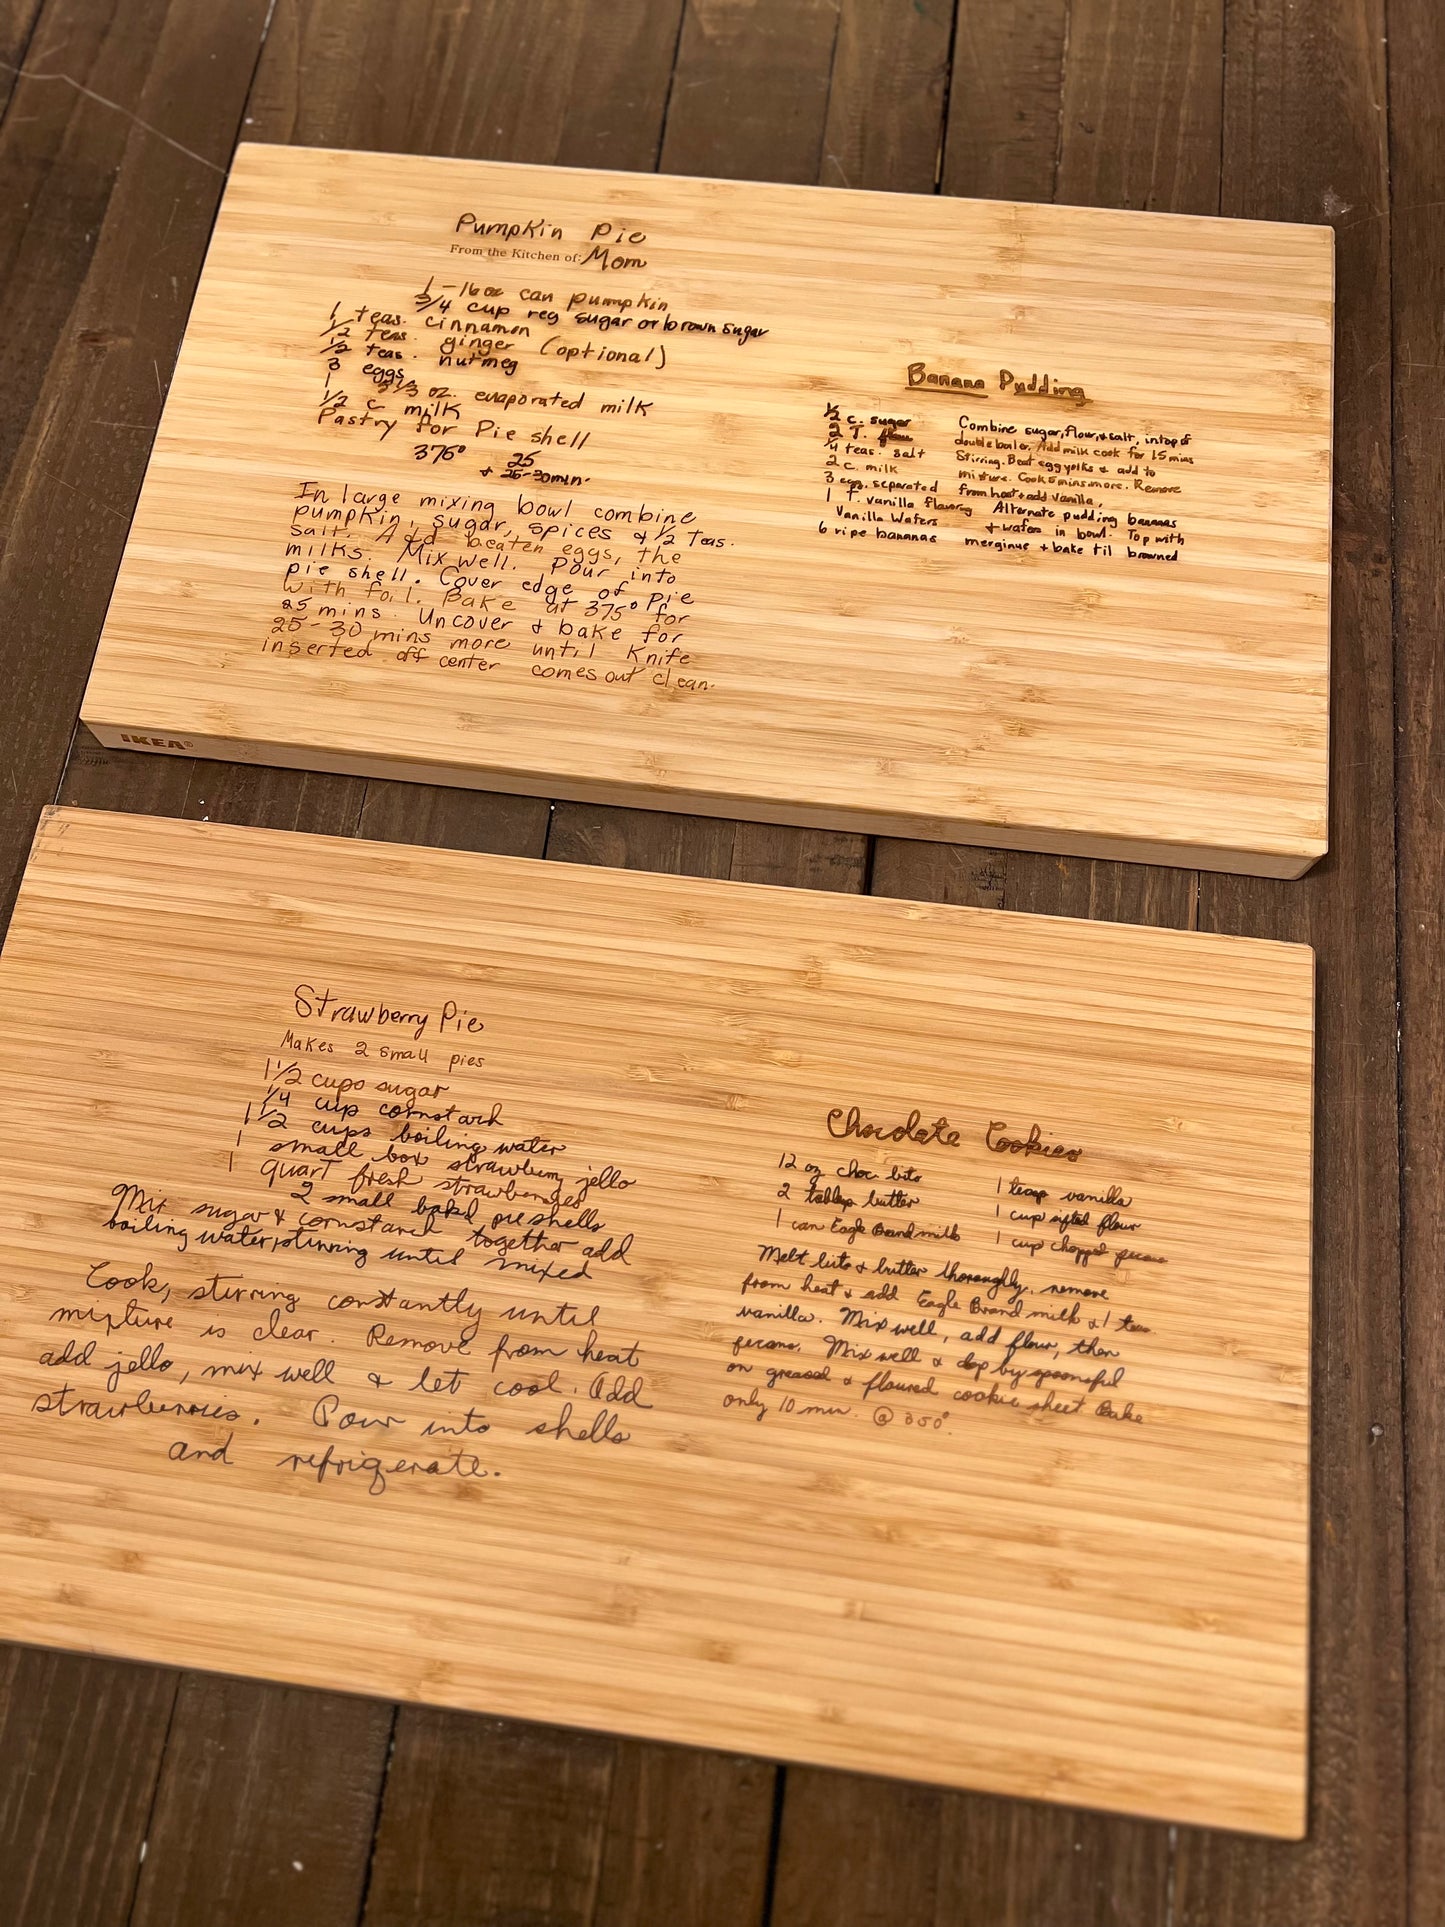 Pumpkin Pie
From the Kitchen of: Mom
1 - 16 oz can pumpkin
3/4 cup reg sugar or brown sugar
1 teas. cinnamon
1/2 teas. ginger (optional)
1/2 teas. nutmeg
3 eggs
1 5 1/3 oz. evaporated milk
1/2 c milk
Pastry for Pie shell
375° 25
+ 25-30min.
In large mixing bowl combine
pumpkin, sugar, spices & 1/2 teas.
salt. Add beaten eggs, the
milks. Mix well. Pour into
pie shell. Cover edge of pie
with foil. Bake at 375° for
25 mins. Uncover & bake for
25-30 mins more until Knife
inserted off center comes out clean.
Banana Pudding
1/2 c. sugar
2 T. flour
1/4 teas. salt
2 c. milk
3 egg. separated
1 T. vanilla flavoring
Vanilla Wafers
6 ripe bananas
Combine sugar, flour, & salt, in top of
double boiler. Add milk cook for 15 mins
Stirring. Beat egg yolks & add to
mixture. Cook 5 mins more. Remove
from heat & add Vanilla,
Alternate pudding bananas
+ wafers in bowl. Top with
meringue + bake til browned
IKEA®
Strawberry Pie
Makes 2 small pies
1 1/2 cups sugar
1/4 cup cornstarch
1 1/2 cups boiling water
1 small box strawberry jello
1 quart fresh strawberries
2 small baked pie shells
Mix sugar & cornstarch together add
boiling water, stirring until mixed
Cook, stirring constantly until
mixture is clear. Remove from heat
add jello, mix well & let cool. Add
strawberries. Pour into shells
and refrigerate.
Chocolate Cookies
12 oz choc bits
2 tablesp butter
1 can Eagle Brand milk
1 teasp vanilla
1 cup sifted flour
1 cup chopped pecans
Melt bits & butter thoroughly, remove
from heat & add Eagle Brand milk & 1 teas.
vanilla. Mix well, add flour, then
pecans. Mix well & drop by spoonful
on greased & floured cookie sheet Bake
only 10 min. @ 350°.